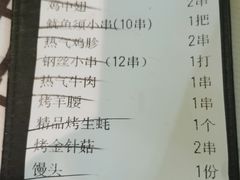 鸡中翅 2串
鱿鱼须小串(10串) 1把
热气鸡胗 2串
钢丝小串（12串） 1打
热气牛肉 1串
烤羊腰 1串
精品烤生蚝 1个
烤金针菇 2串
馒头 1份